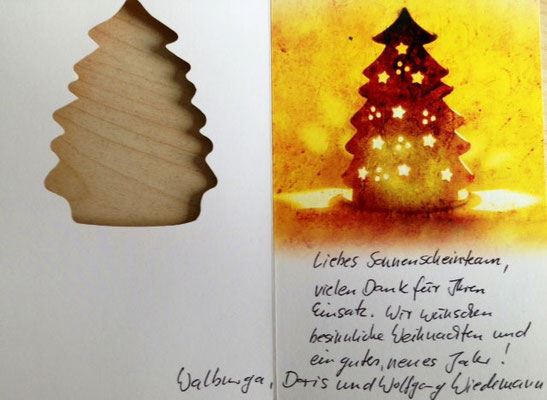 Liebes Sonnenscheinteam,
vielen Dank für Ihren
Einsatz. Wir wünschen
besinnliche Weihnachten und
ein gutes, neues Jahr!
Walburga, Doris und Wolfgang Wiedemann